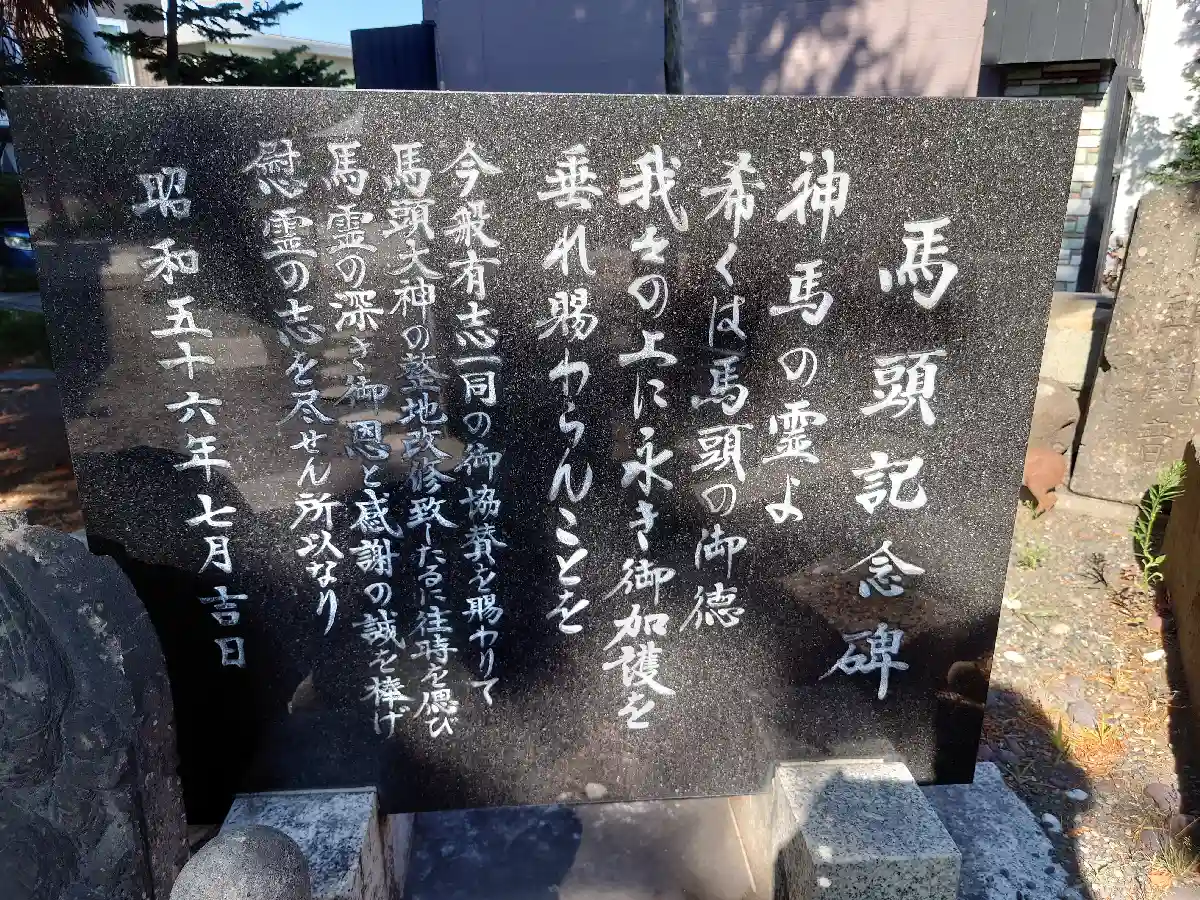 馬頭記念碑
神馬の霊よ
希くは馬頭の御徳
我をの上に永き御加護を
垂れ賜わらんことを
今般有志一同の御協賛を賜わりて
馬頭大神の整地改修致したるに往時を偲び
馬霊の深き御恩と感謝の誠を棒げ
慰霊の志を尽せん所以なり
昭和五十六年七月吉日